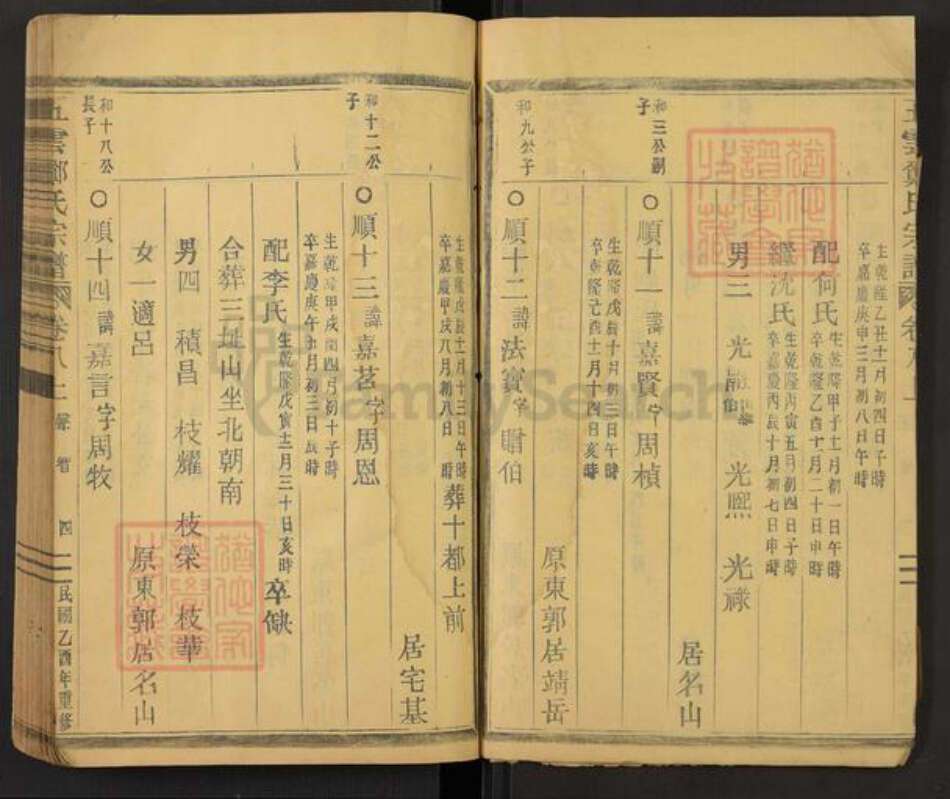 生乾隆乙丑十一月初四日子時
卒嘉慶庚申三月初八日午時
配何氏
生乾隆甲子十一月初一日午時
卒乾隆乙酉十一月二十日申時
繼沈氏
生乾隆丙寅五月初四日子時
卒嘉慶丙辰十月初七日申時
男三 光 光熙 光祿
居名山
和三公嗣子
○順十一諱嘉賢字周楨
生乾隆戊辰十月初三日午時
卒乾隆己酉十一月十四日亥時
原東郭居靖岳
和九公子
○順十二諱法寶字聘伯
生乾隆戊辰十二月十三日午時
卒嘉慶甲戌八月初八日 時
葬十都上前
居宅基
和十二公子
○順十三諱嘉茗字周恩
生乾隆甲戌閏四月初十子時
卒嘉慶庚午 月初三日辰時
配李氏
生乾隆戊寅十二月三十日亥時
卒缺
合葬三址山坐北朝南
男四 積昌 枝耀 枝榮 枝華
女一適呂
原東郭居名山
和十八公長子
○順十四諱嘉言字周牧
五雲鄭氏宗譜 卷八上
四
民國乙酉年重修
FamilySearch